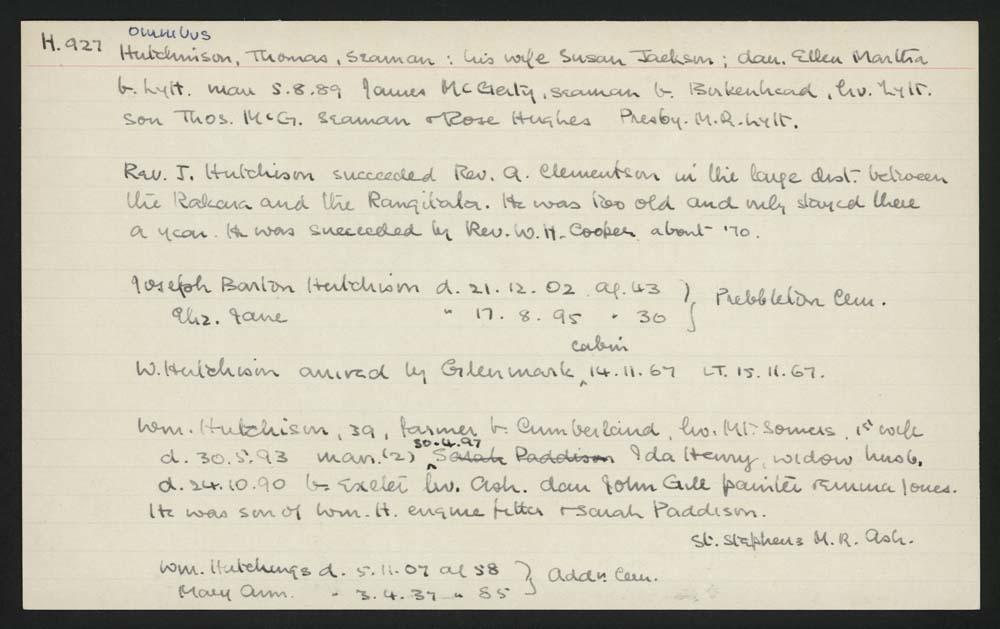 omnibus
H.927 Hutchinson, Thomas, seaman : his wife Susan Jackson ; dau. Ellen Martha
b. Lytt. marr 5.8.89 James McGerty, seaman b. Birkenhead, liv. Lytt.
son Thos. McG. seaman + Rose Hughes Presby. M.R. Lytt.
Rev. J. Hutchison succeeded Rev. A. Clementson in the large dist. between
the Rakaia and the Rangitata. He was too old and only stayed there
a year. He was succeeded by Rev. W.H. Cooper about '70.
Joseph Barton Hutchison d. 21.12.02 ag. 43 } Prebbleton Cem.
Eliz. Jane " 17.8.95 " 30
cabin
W. Hutchison arrived by Glenmark ^ 14.11.67 LT. 15.11.67.
Wm. Hutchison, 39, farmer b. Cumberland, liv. Mt. Somers, 1st wife
30.4.97
d. 30.5.93 marr. (2) ^ Sarah Paddison Ida Henry, widow husb.
d. 24.10.90 b. Exeter liv. Ash. dau John Gill painter + Emma Jones.
He was son of Wm. H. engine fitter + Sarah Paddison.
St. Stephens M.R. Ash.
Wm. Hutchings d. 5.11.07 ag 58 } Addn Cem.
Mary Ann. " 3.4.37 " 85